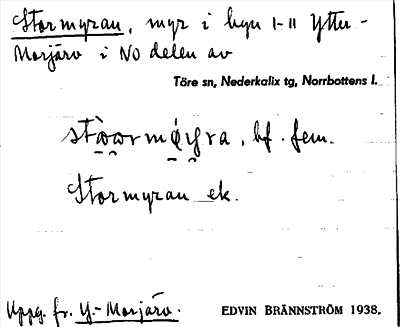 Stormyran, myr i byn 1-11 Ytter-
Morjärv i NO delen av
Töre sn, Nederkalix tg, Norrbottens l.
bf. fem.
Stormyran ek.
Uppg. fr. Y.-Morjärv.
EDVIN BRÄNNSTRÖM 1938.